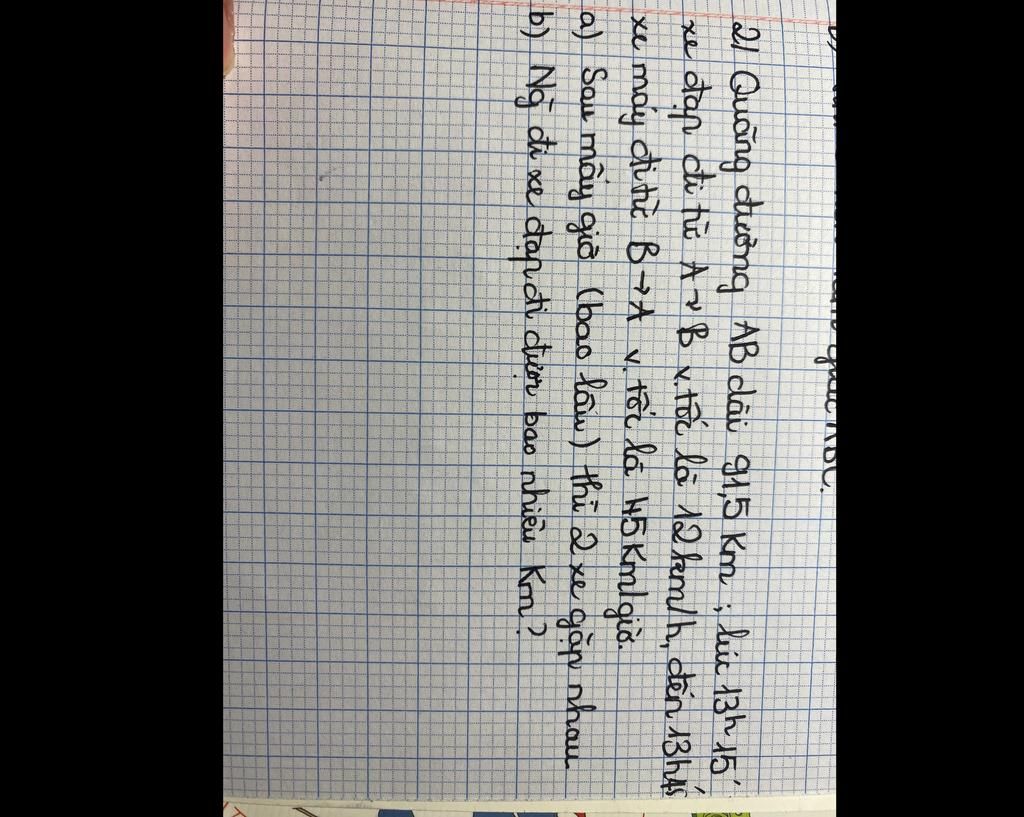 ABC.
2) Quãng đường AB dài 91,5 Km ; lúc 13h15'
xe đạp đi từ A → B v.tốc là 12km/h, đến 13h45'
xe máy đi từ B → A v.tốc là 45Km/giờ.
a) Sau mấy giờ (bao lâu) thì 2 xe gặp nhau
b) Ng̃ đi xe đạp đi được bao nhiêu Km?